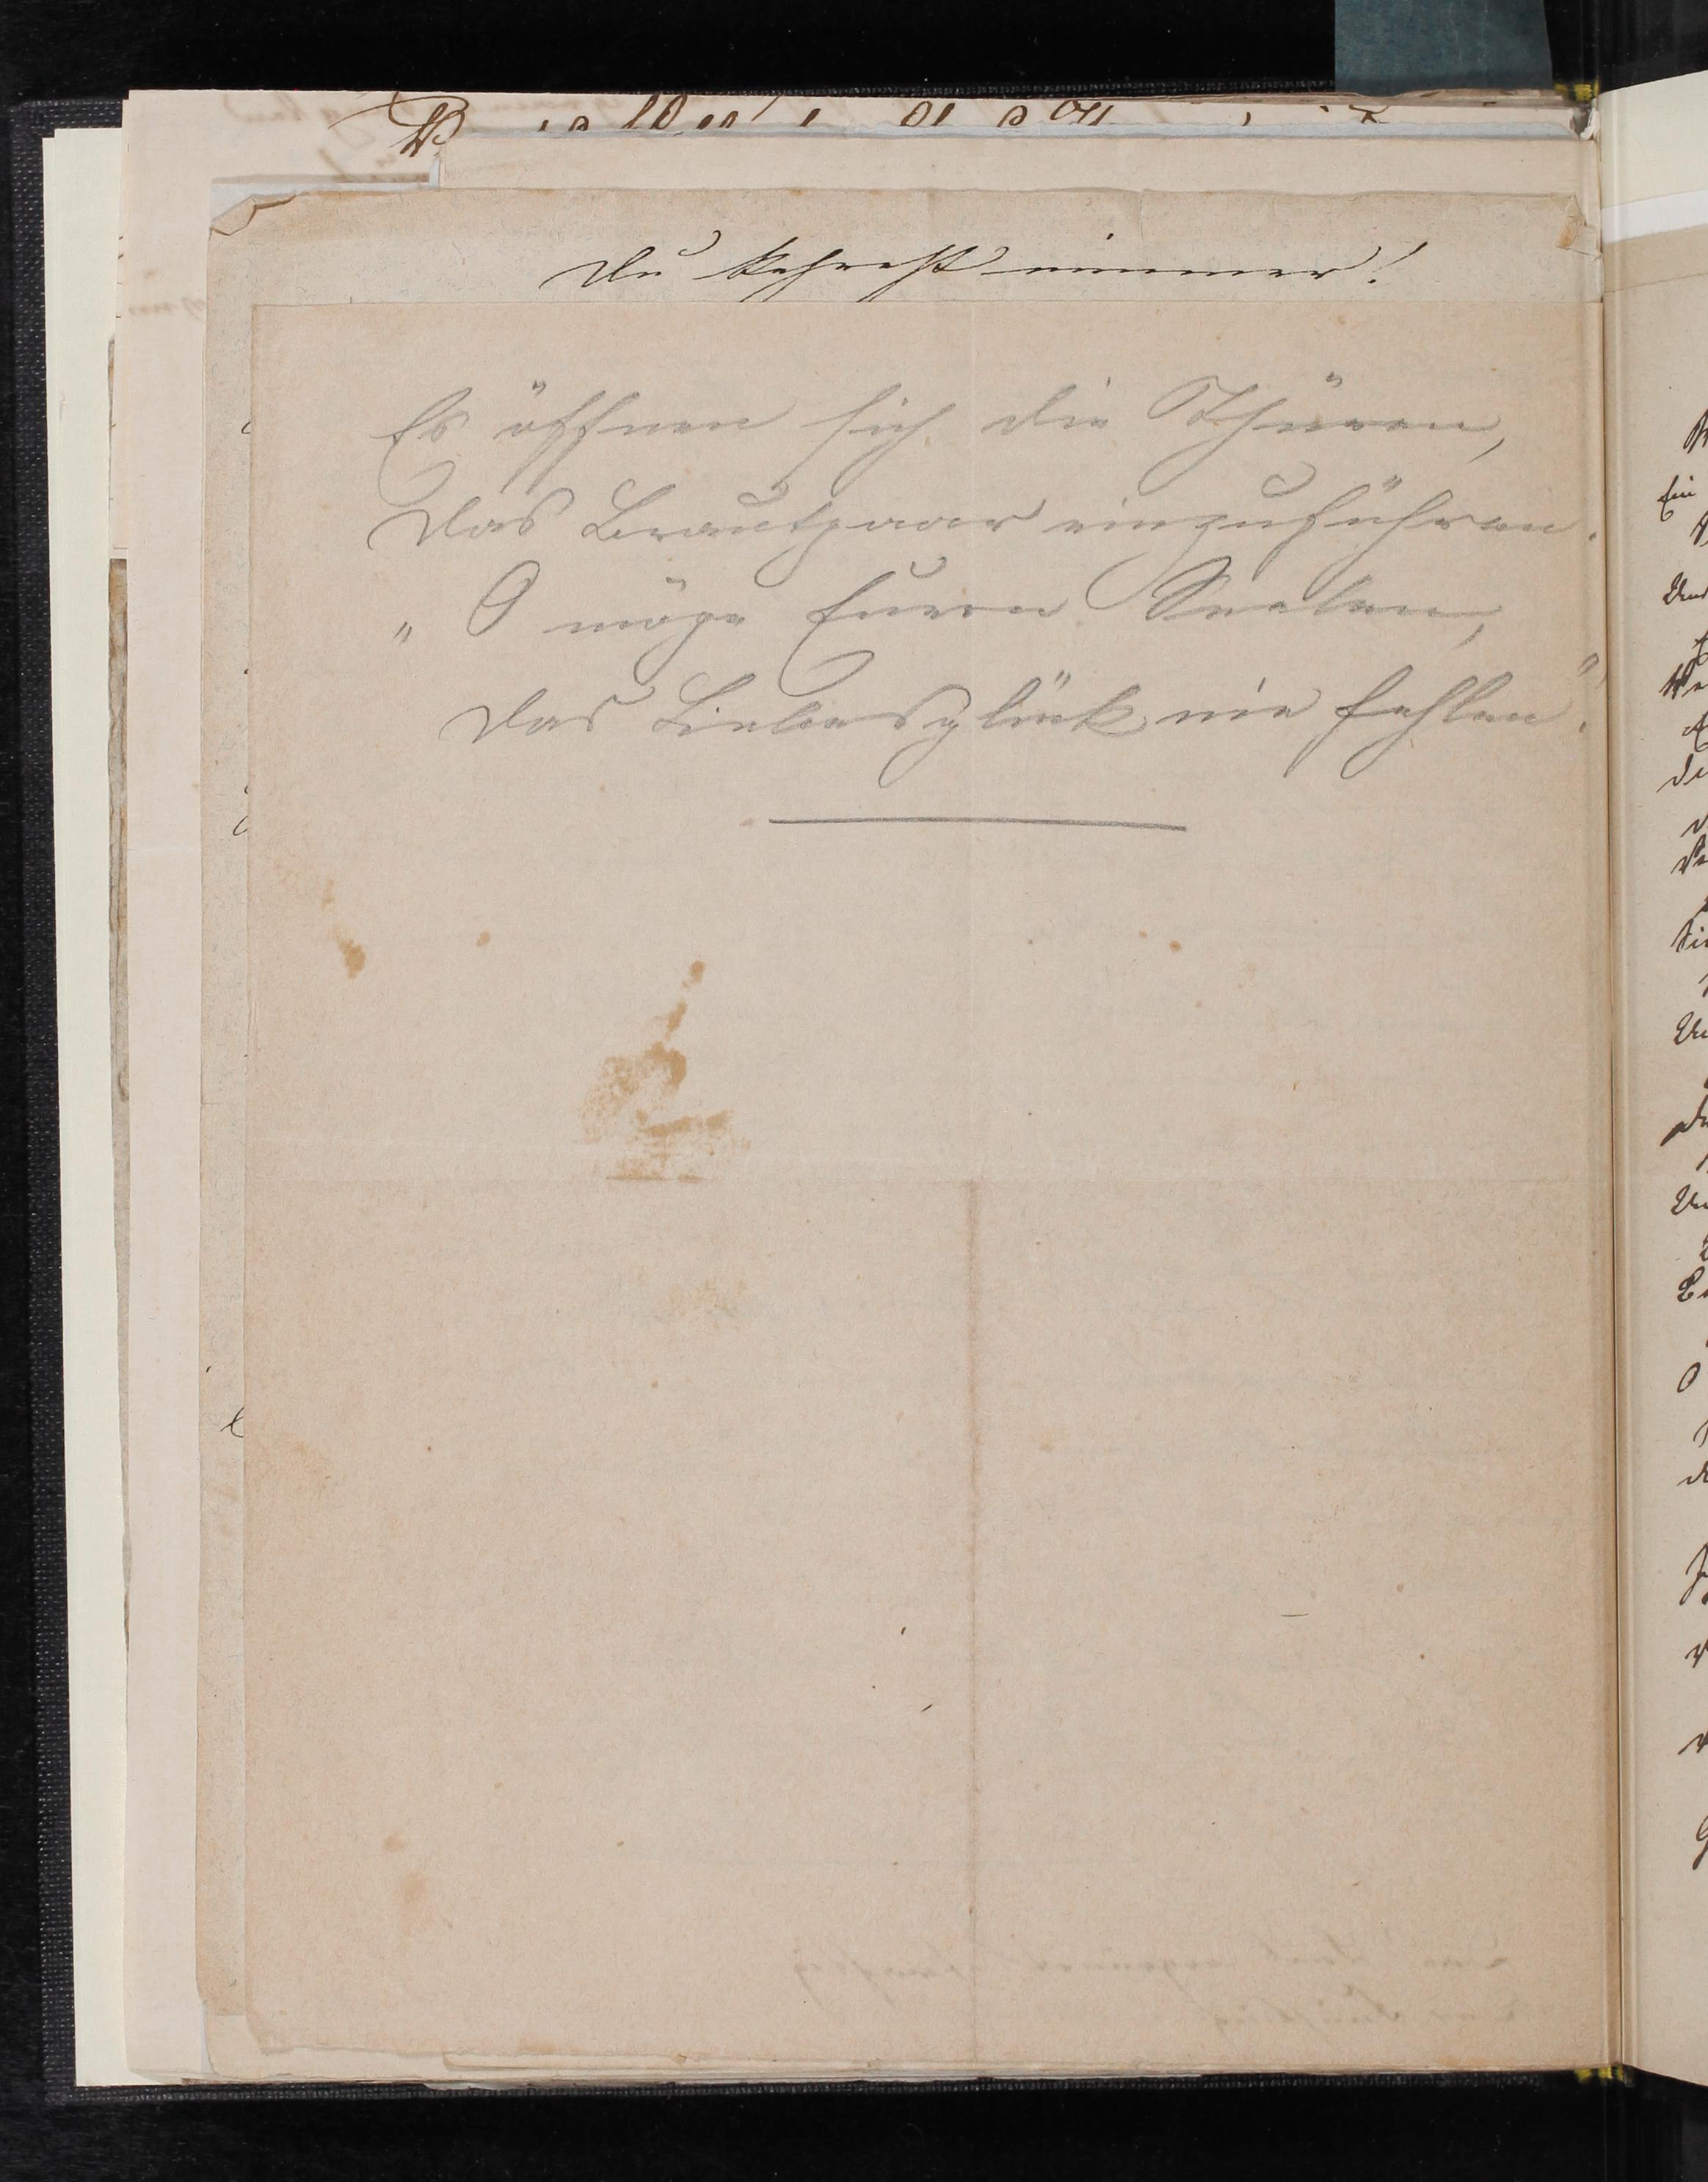 Du kehrest nimmer!
Es öffnen sich die Thüren,
Das Brautpaar einzuführen.
„O möge Euren Seelen,
Das Liebesglück nie fehlen“.